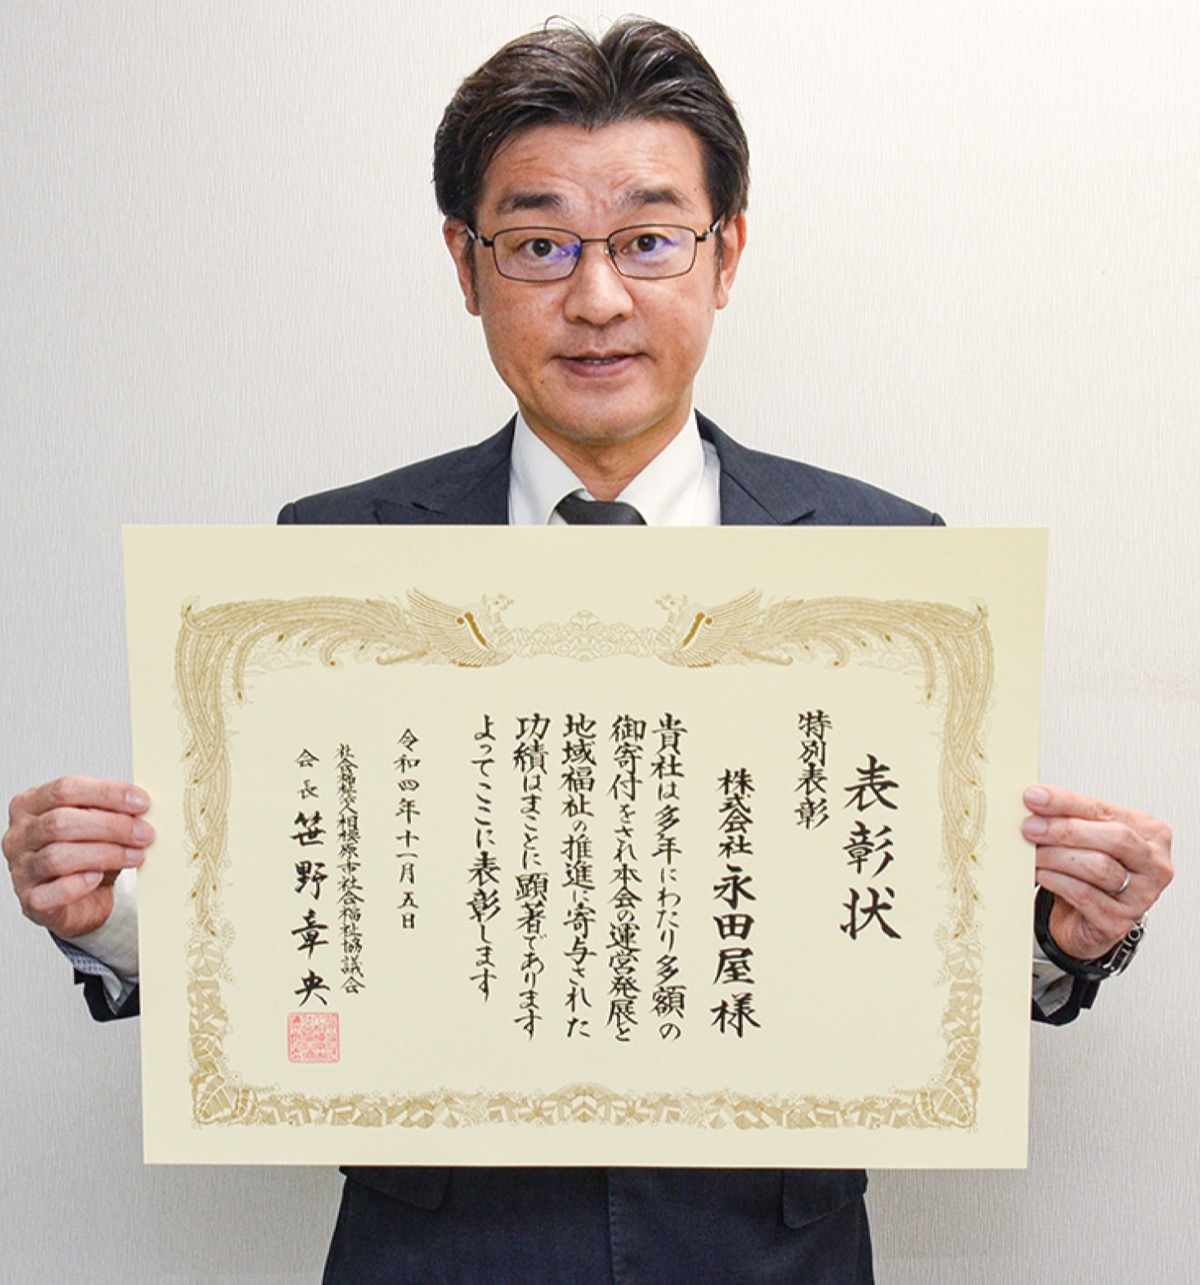 表彰状
特別表彰
株式会社永田屋様
貴社は多年にわたり多額の
御寄付をされ本会の運営発展と
地域福祉の推進に寄与された
功績はまことに顕著であります
よってここに表彰します
令和四年十一月五日
社会福祉法人相模原市社会福祉協議会
会長 笹野章央